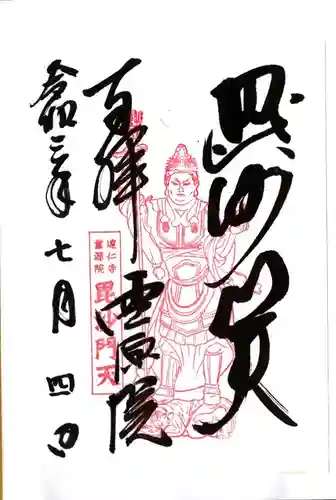 毘沙門天
百拝 霊源院
令和三年七月四日
建仁寺
霊源院
毘沙門天